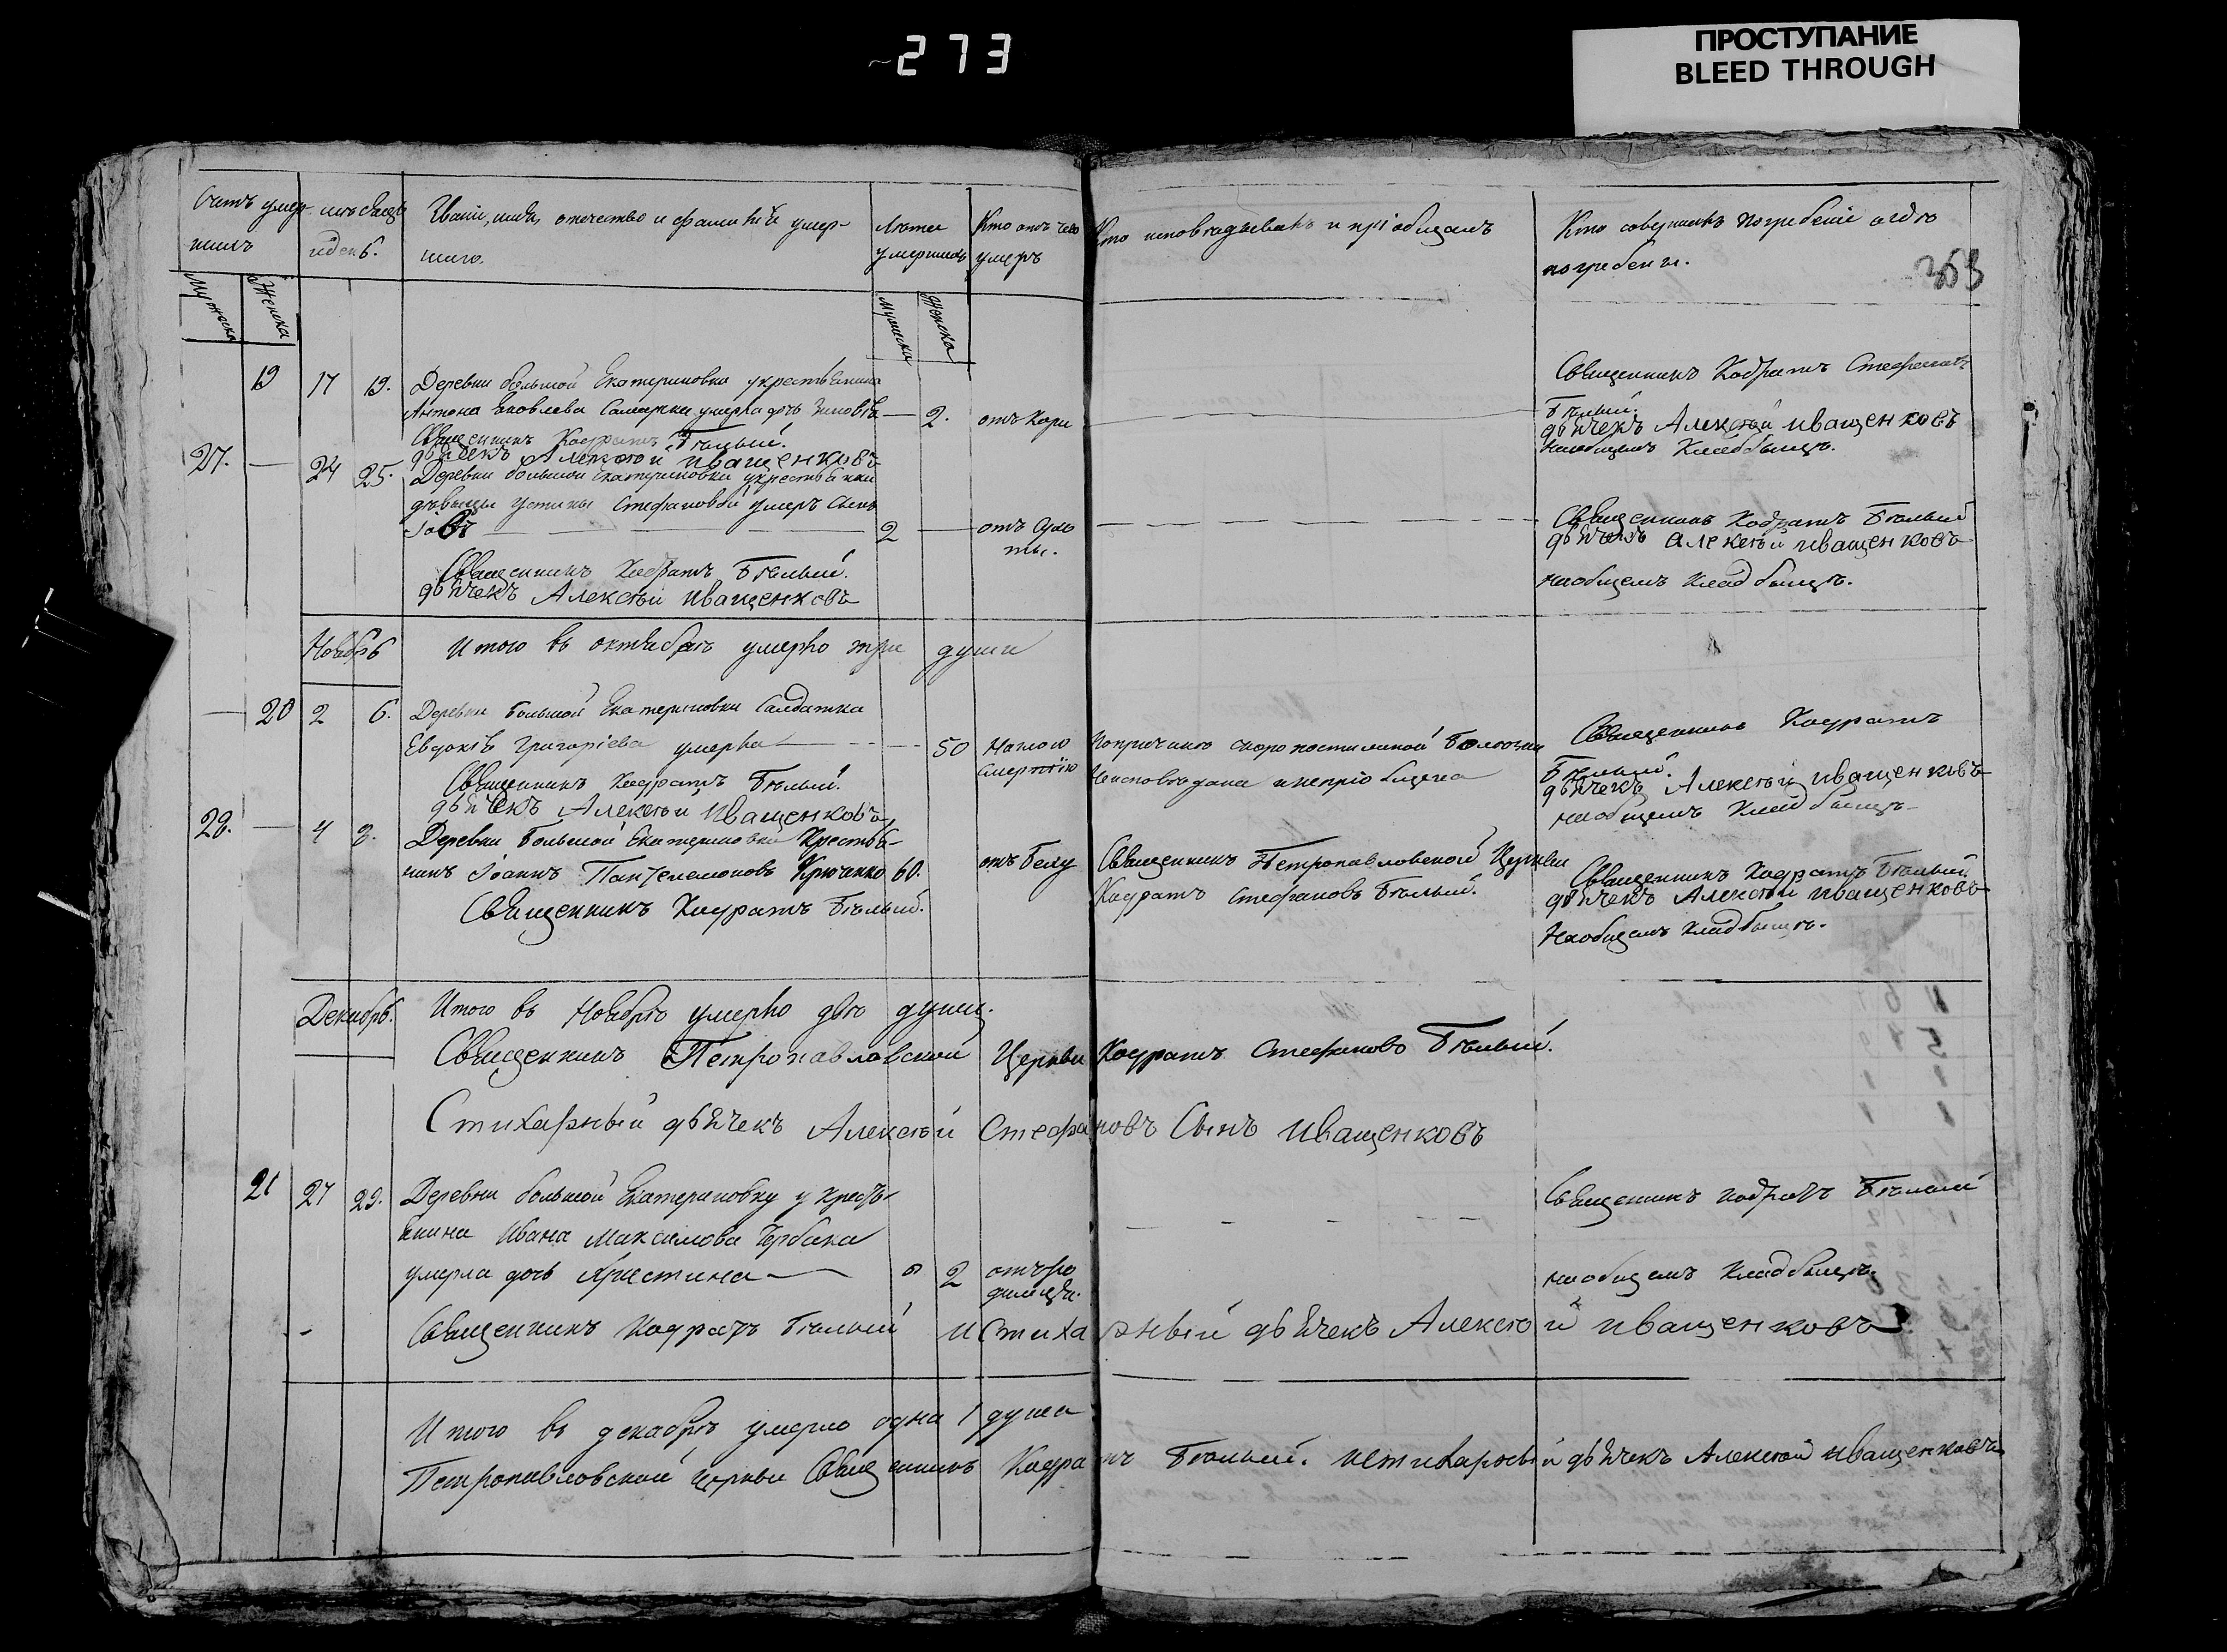 273
ПРОСТУПАНИЕ
BLEED THROUGH
Счетъ умер-
шихъ
Званіе, имя, отечество и фамилія умер-
шаго.
Лѣта
умершихъ
Кто отъ чего
умеръ
Кто исповѣдывалъ и пріобщалъ
Кто совершалъ погребеніе и гдѣ
погребены.
353
Мужеска
Женска
Мужеска
Женска
19 17 19. Деревни большой Екатериновки у крестьянина
Антона Яковлева умерла дочь Зиновія — 2. отъ Кори
Священникъ Кодратъ Бѣлый.
дьячекъ Алексѣй иващенковъ
Священникъ Кодратъ Стефановъ
Бѣлый.
дьячекъ Алексѣй иващенковъ
наобщемъ Кладбыщѣ.
27. — 24 25. Деревни большой Екатериновки у крестьянки
дѣвыцы Устины Стефановой умеръ Сынъ
Іовъ — 2 — отъ
Священникъ Кодратъ Бѣлый.
дьячекъ Алексѣй иващенковъ
Священникъ Кодратъ Бѣлый
дьячекъ Алексѣй иващенковъ
наобщемъ Кладбыщѣ.
Ноябрь
Итого въ октябрѣ умерло три души
— 20 2 6. Деревни Большой Екатериновки Салдатка
Евдокія Григоріева умерла — 50 Наглою
смертію
Попричинѣ скоропостижной Болѣзни
Неисповѣдана инепріобщена
Священникъ Кодратъ Бѣлый.
дьячекъ Алексѣй иващенковъ
Священникъ Кодратъ
Бѣлый.
дьячекъ Алексѣй иващенковъ
наобщемъ Кладбыщѣ
28. — 4 Деревни Большой Екатериновки Крестья-
нинъ Іоаннъ Пантелемоновъ Крючанко 60.
Священникъ Кодратъ Бѣлый.
Священникъ Петропавловской Церкви
Кодратъ Стефановъ Бѣлый.
Священникъ Кодратъ Бѣлый
дьячекъ Алексѣй иващенковъ
Наобщемъ Кладбыщѣ.
Декабрь.
Итого въ Ноябрѣ умерло двѣ души.
Священникъ Петропавловской Церкви Кодратъ Стефановъ Бѣлый.
Стихарный дьячекъ Алексѣй Стефановъ Сынъ иващенковъ
21 27 29. Деревни большой Екатериновки у кресть-
янина Ивана Максимова
умерла дочь Христина — 2
Священникъ Кодратъ Бѣлый
наобщемъ Кладбыщѣ.
Священникъ Кодратъ Бѣлый и Стихарный дьячекъ Алексѣй иващенковъ
Итого въ декабрѣ умерло одна 1 душа
Петропавловской церкви Священникъ Кодратъ Бѣлый. и стихарный дьячекъ Алексѣй иващенковъ